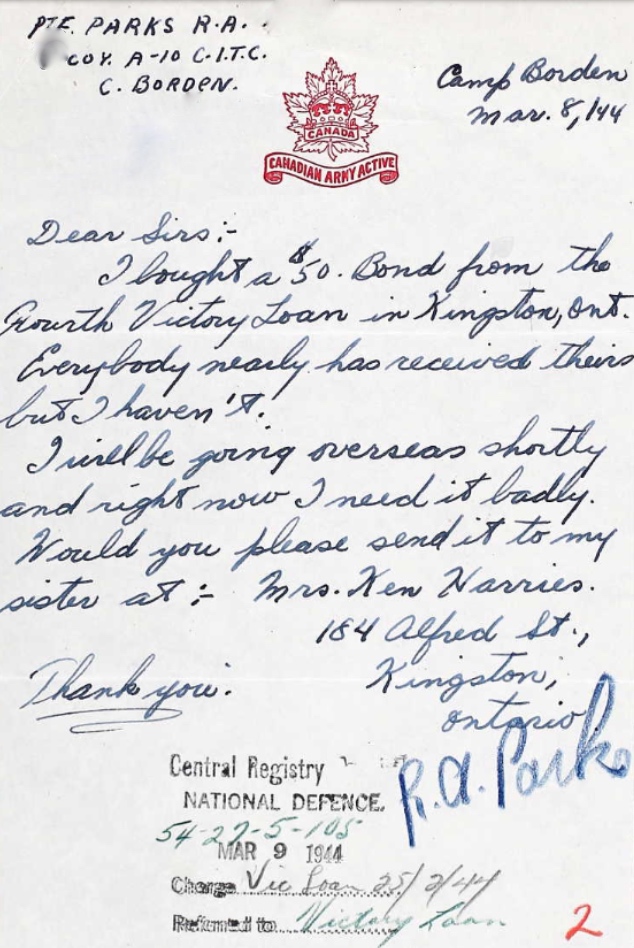 PTE. PARKS R.A.
COY. A-10 C.I.T.C.
C. BORDEN.
Camp Borden
Mar. 8, /44
CANADA
CANADIAN ARMY ACTIVE
Dear Sirs:-
I bought a $50. Bond from the
Fourth Victory Loan in Kingston, Ont.
Everybody nearly has received theirs
but I haven't.
I will be going overseas shortly
and right now I need it badly.
Would you please send it to my
sister at :- Mrs. Ken Harries.
184 Alfred St.,
Kingston,
Ontario
Thank you.
R.A. Parks
Central Registry
NATIONAL DEFENCE.
54-27-5-105
MAR 9 1944
Charge Vic Loan 25/2/44
Referred to Victory Loan
2